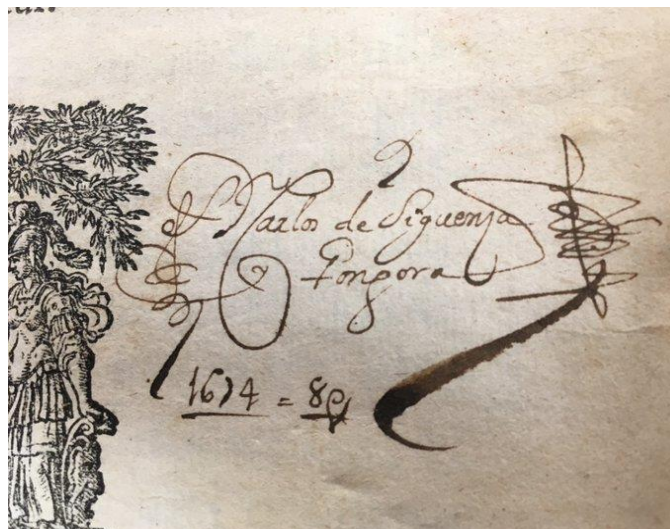 D. Carlos de Siguenza
y Gongora
1674 = 8p